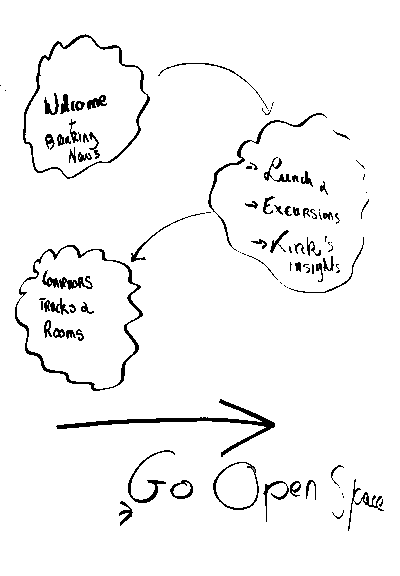 Welcome
+
Breaking
News
→ Lunch &
→ Excursions
→ Kirk's
insights
Convenors
Tracks &
Rooms
Go Open Space